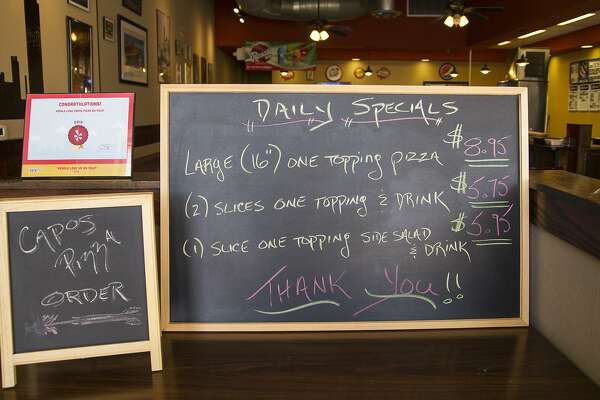 CONGRATULATIONS!
PEOPLE LOVE CAPOS PIZZA ON YELP!
2018
PEOPLE LOVE US ON YELP
CAPOS
PIZZA
ORDER
DAILY SPECIALS
LARGE (16") ONE TOPPING PIZZA $8.95
(2) SLICES ONE TOPPING & DRINK $5.75
(1) SLICE ONE TOPPING SIDE SALAD & DRINK $5.95
THANK YOU!!